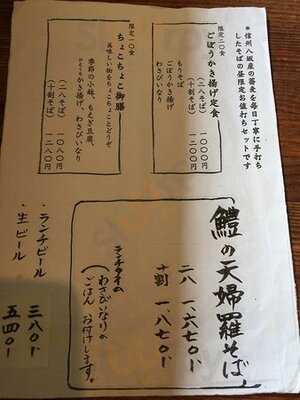 ※信州八坂産の蕎麦を毎日丁寧に手打ち
したそばの昼限定お値打ちセットです
限定二〇食
ごぼうかき揚げ定食
(二八そば) 一〇八〇
(十割そば) 一二八〇
もりそば
ごぼうかき揚げ
わさびいなり
限定一〇食
ちょこちょこ御膳
美味しい物をちょこちょことどうぞ
季節の小鉢、もえぎ豆腐、
かき揚げ、わさびいなり
(二八そば) 一〇八〇
(十割そば) 一二八〇
鱧の天婦羅そば
二八 一、六七〇-
十割 一、八七〇-
ランチタイムの
(わさびいなりの
ごはん お付けします。
・ランチビール 三八〇-
・生ビール 五四〇-